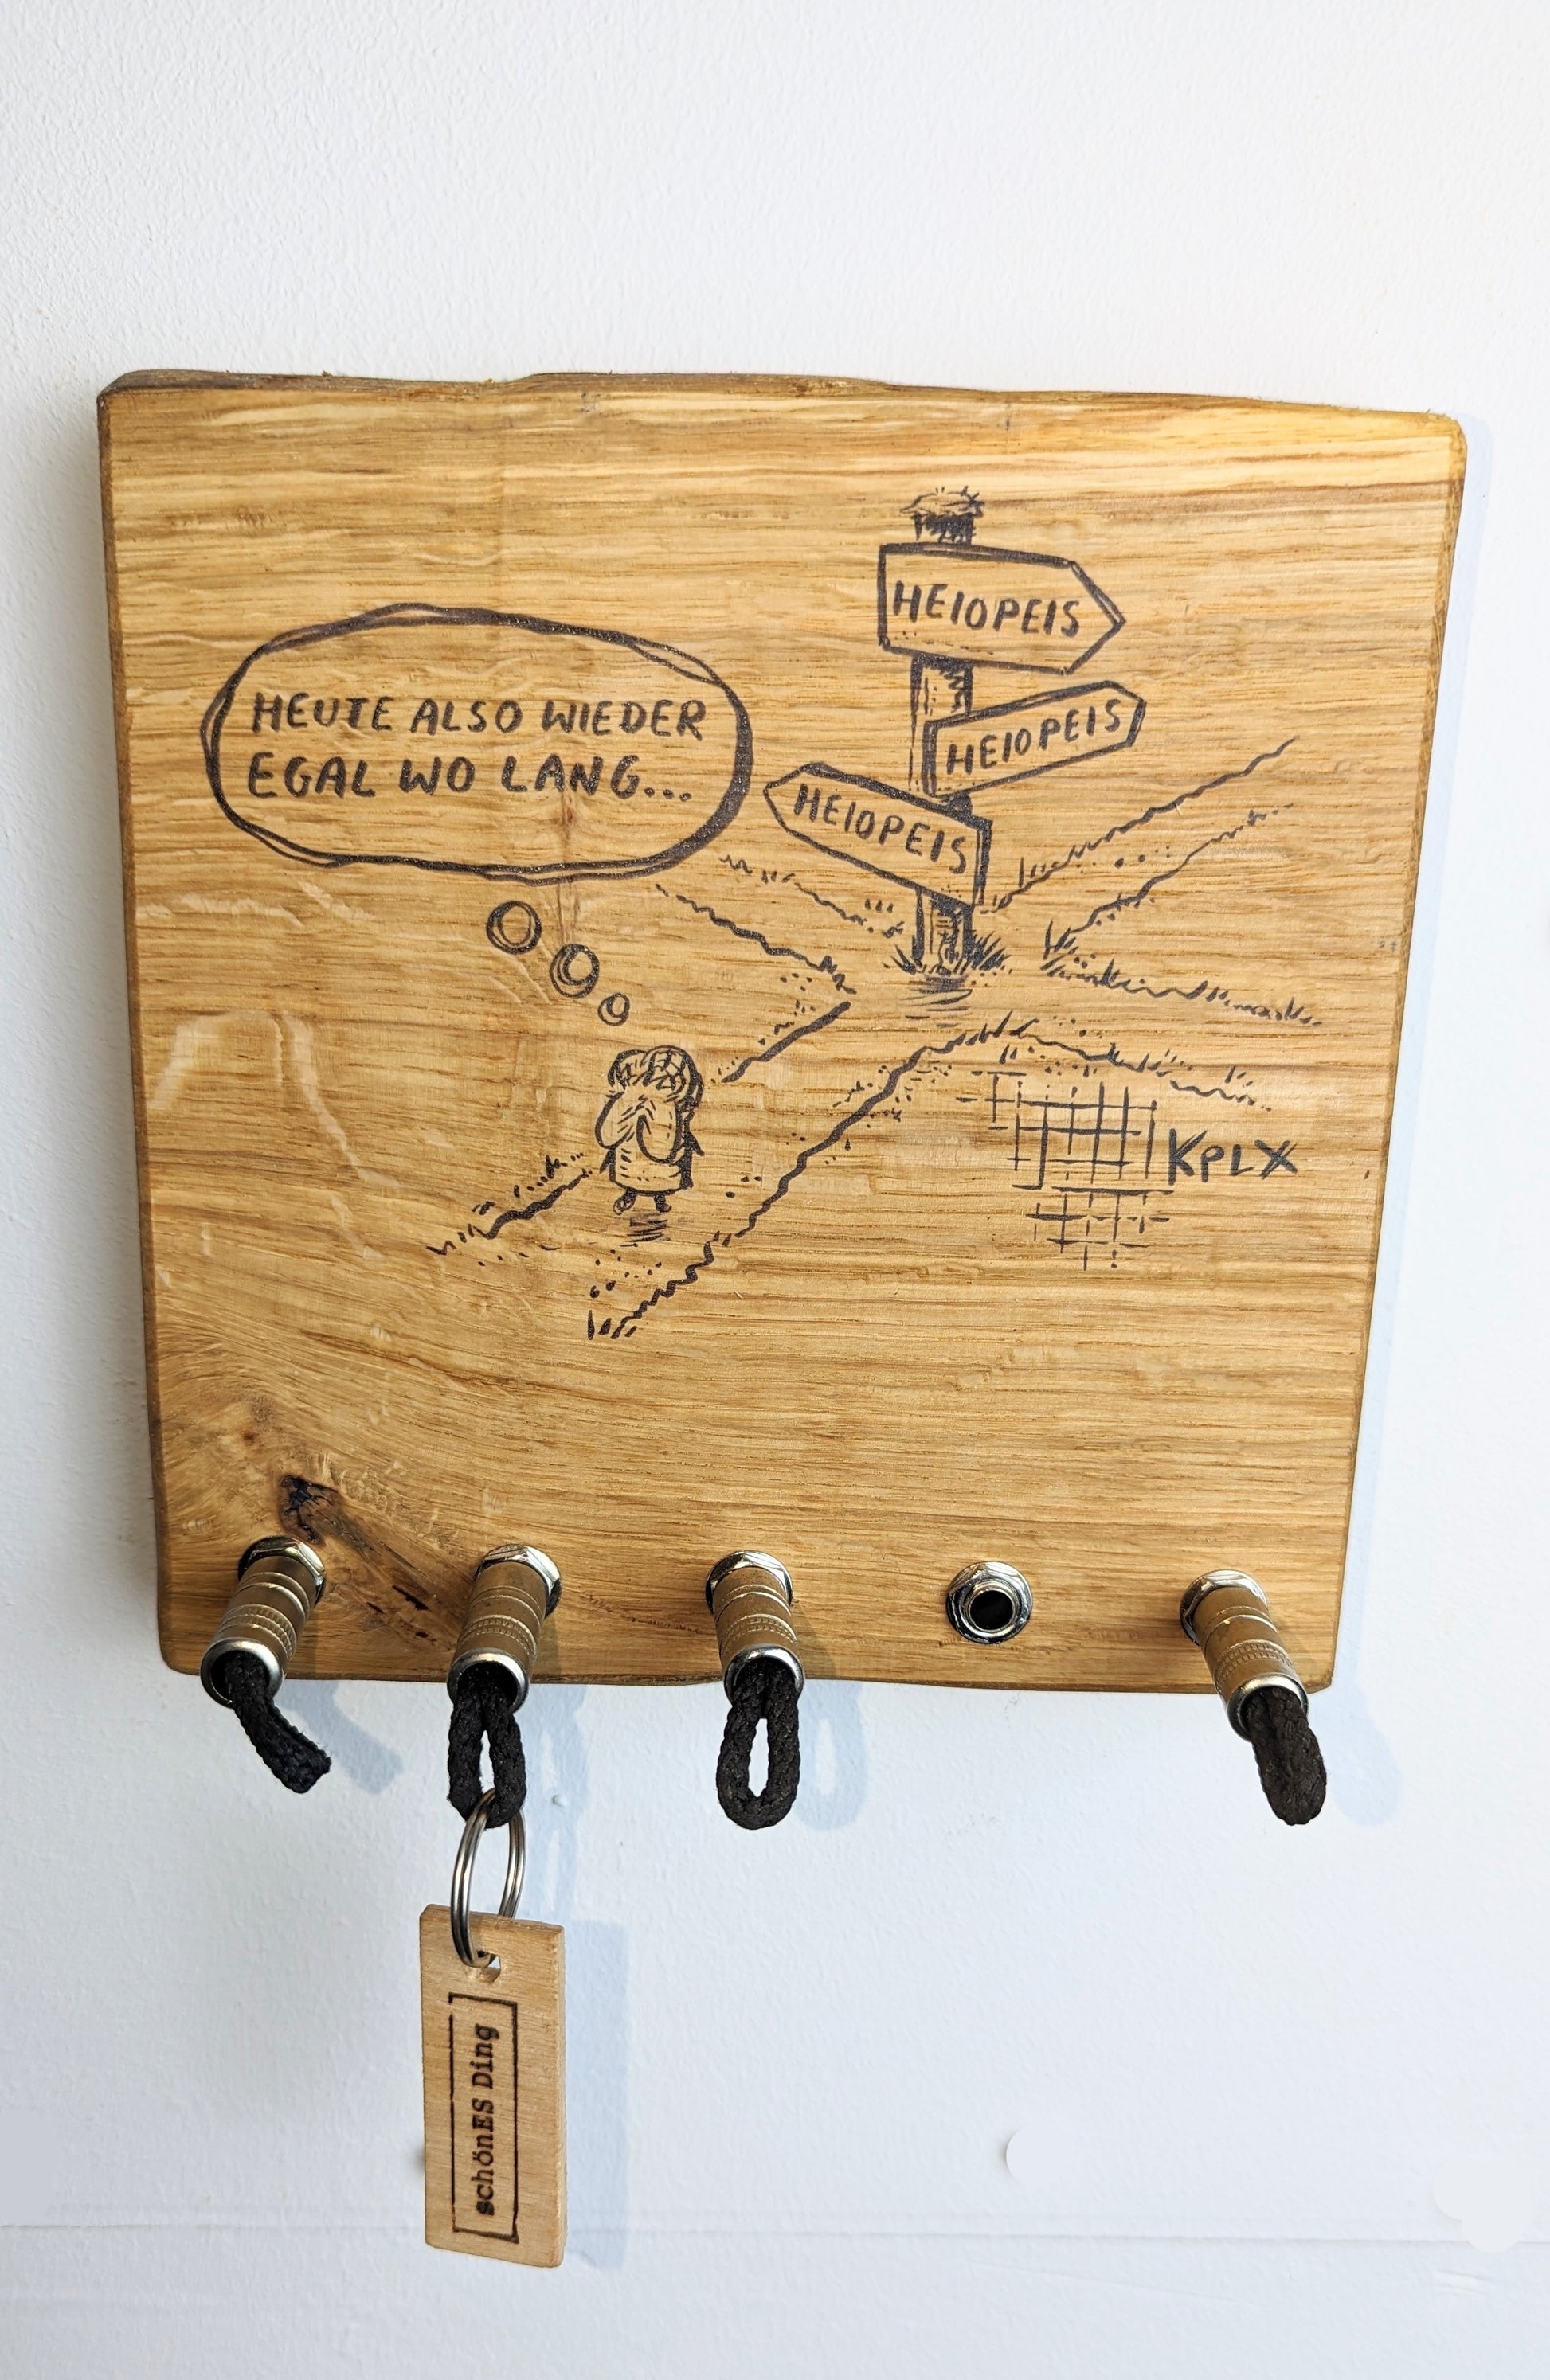 HEIOPEIS
HEIOPEIS
HEIOPEIS
HEUTE ALSO WIEDER
EGAL WO LANG...
KPLX
schönES Ding